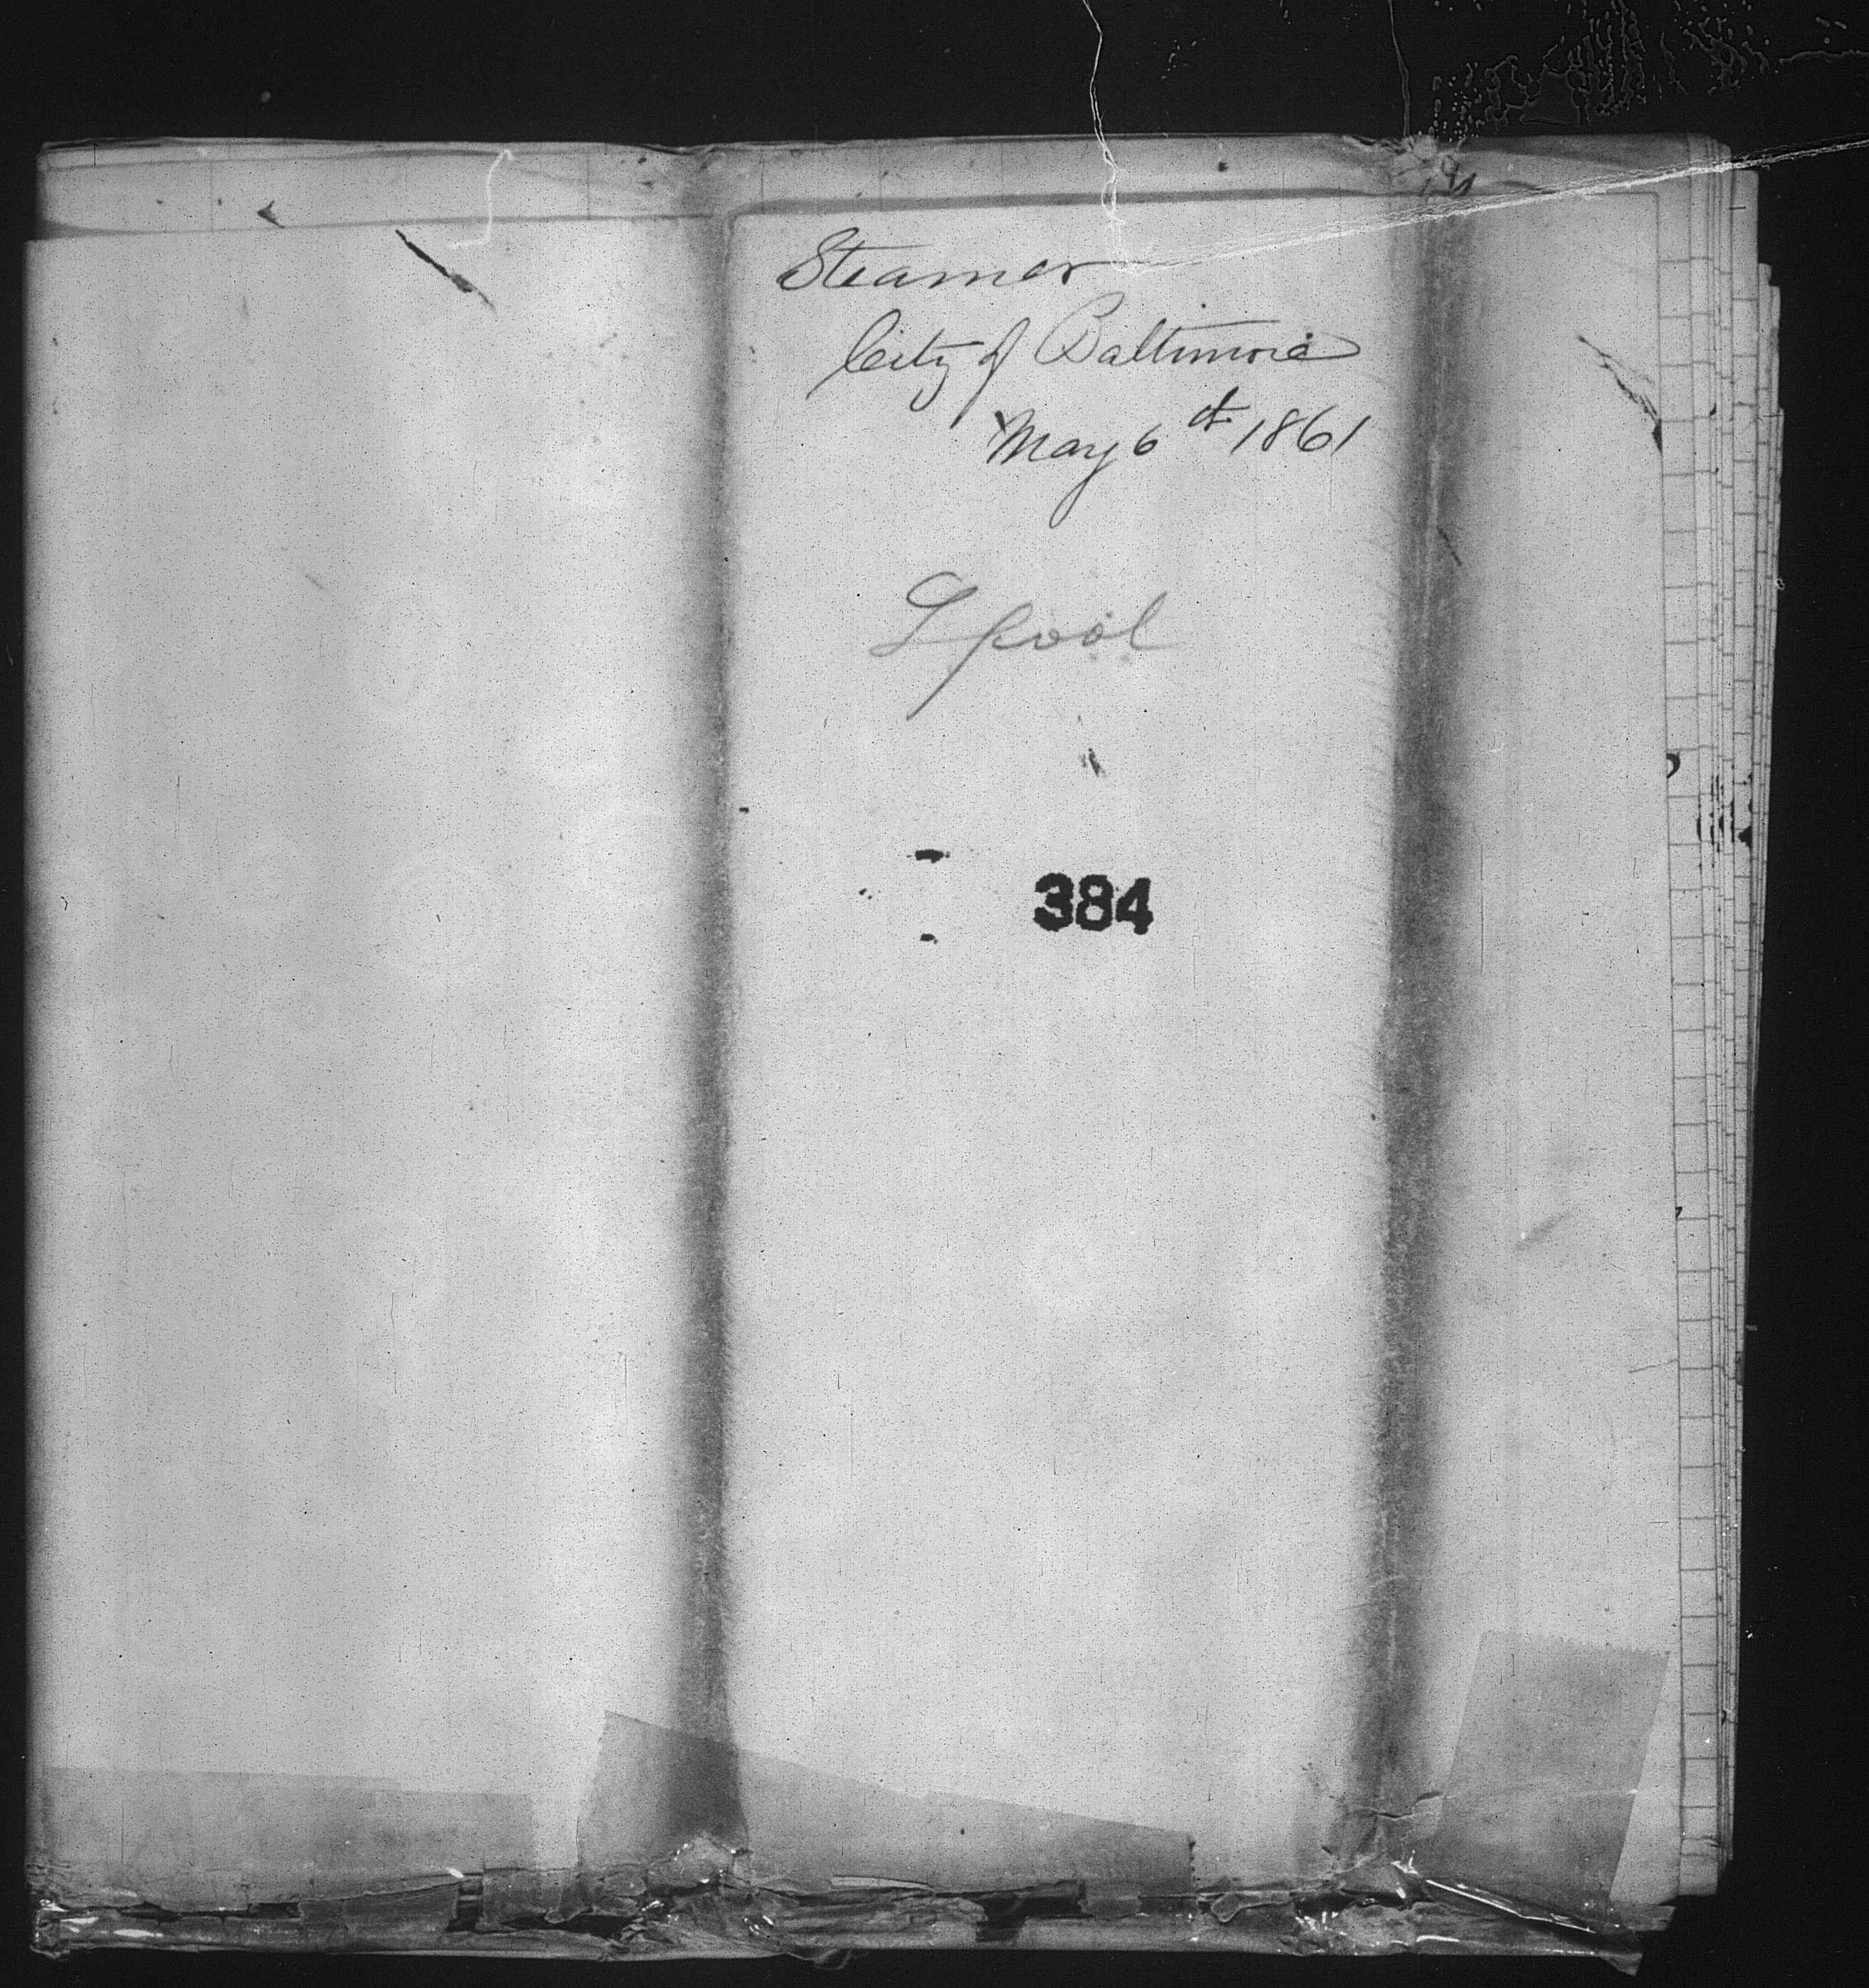 Steamer
City of Baltimore
May 6th 1861
Lpool
384